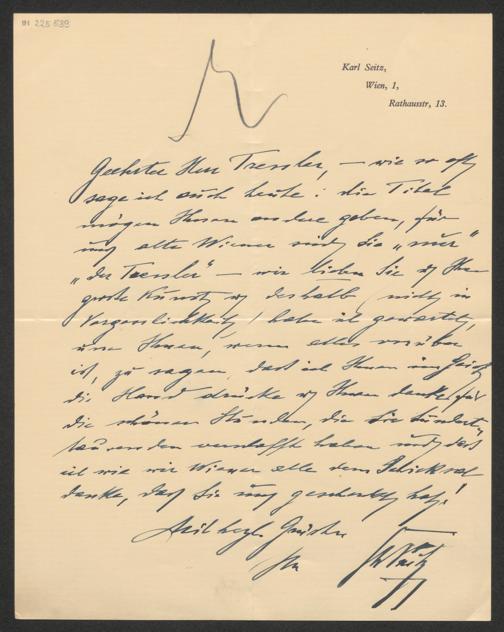 IN 225 539
Karl Seitz,
Wien, 1,
Rathausstr, 13.
Geehrter Herr Tressler, – wie so oft
sage ich auch heute: die Titel
mögen Ihnen andere geben, für
uns alte Wiener sind Sie „nur"
„der Tressler" – wir lieben Sie u Ihre
große Kunst u deshalb (nicht in
Vergesslichkeit) habe ich gewartet,
um Ihnen, wenn alles vorüber
ist, zu sagen, daß ich Ihnen im Geist
die Hand drücke u Ihnen danke für
die schönen Stunden, die Sie hundert-
tausenden verschafft haben und daß
ich wie wir Wiener alle dem Schicksal
danke, daß Sie uns geschenkt hat!
Mit herzl. Grüßen
Ihr Seitz